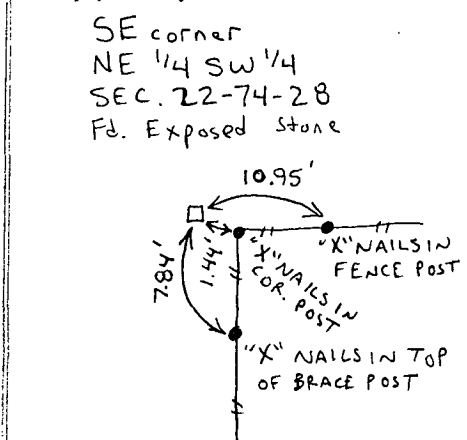 SE corner
NE 1/4 SW 1/4
SEC. 22-74-28
Fd. Exposed Stone
10.95'
7.84'
1.44'
"X" NAILS IN
COR. POST
"X" NAILS IN
FENCE POST
"X" NAILS IN TOP
OF BRACE POST